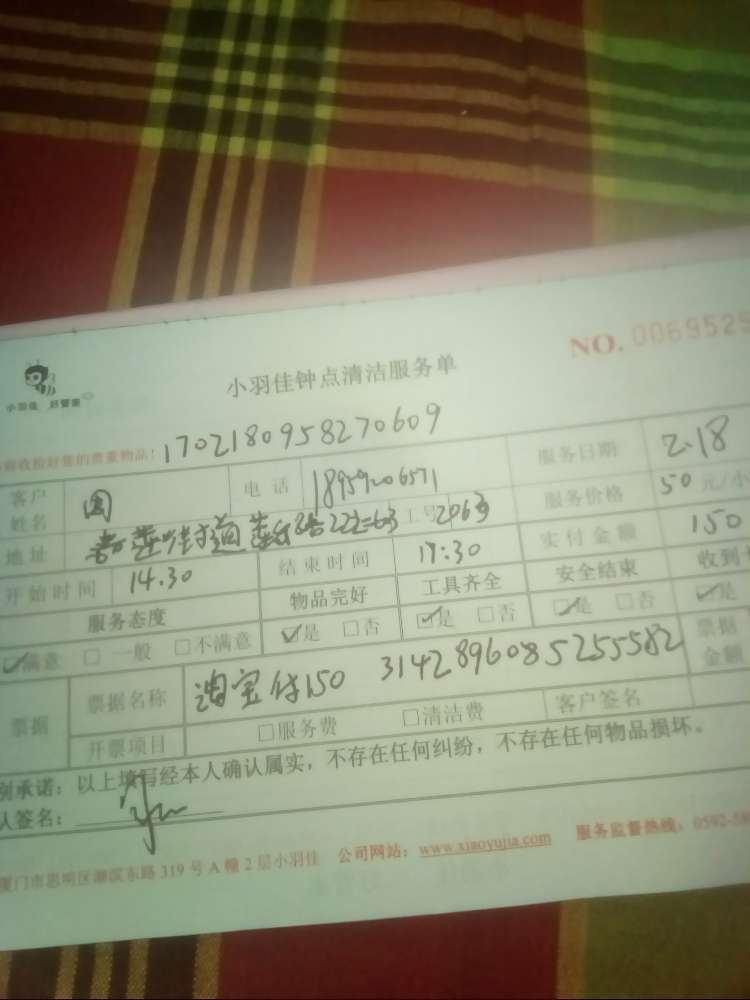 NO. 0069525
小羽佳 好管家
小羽佳钟点清洁服务单
收检好您的贵重物品! 1702180958270609
客户姓名 圆 电话 18959206571 服务日期 2.18
地址 嘉莲街道 222-603 工号 2063 服务价格 50 元/小
开始时间 14.30 结束时间 17:30 实付金额 150
服务态度 物品完好 工具齐全 安全结束 收到
☑满意 □一般 □不满意 ☑是 □否 ☑是 □否 ☑是 □否 ☑是
票据 票据名称 淘宝付150 3142896085255582 票据金额
开票项目 □服务费 □清洁费 客户签名
承诺:以上填写经本人确认属实,不存在任何纠纷,不存在任何物品损坏。
人签名:
厦门市思明区湖滨东路319号A幢2层小羽佳 公司网站:www.xiaoyujia.com 服务监督热线:0592-58